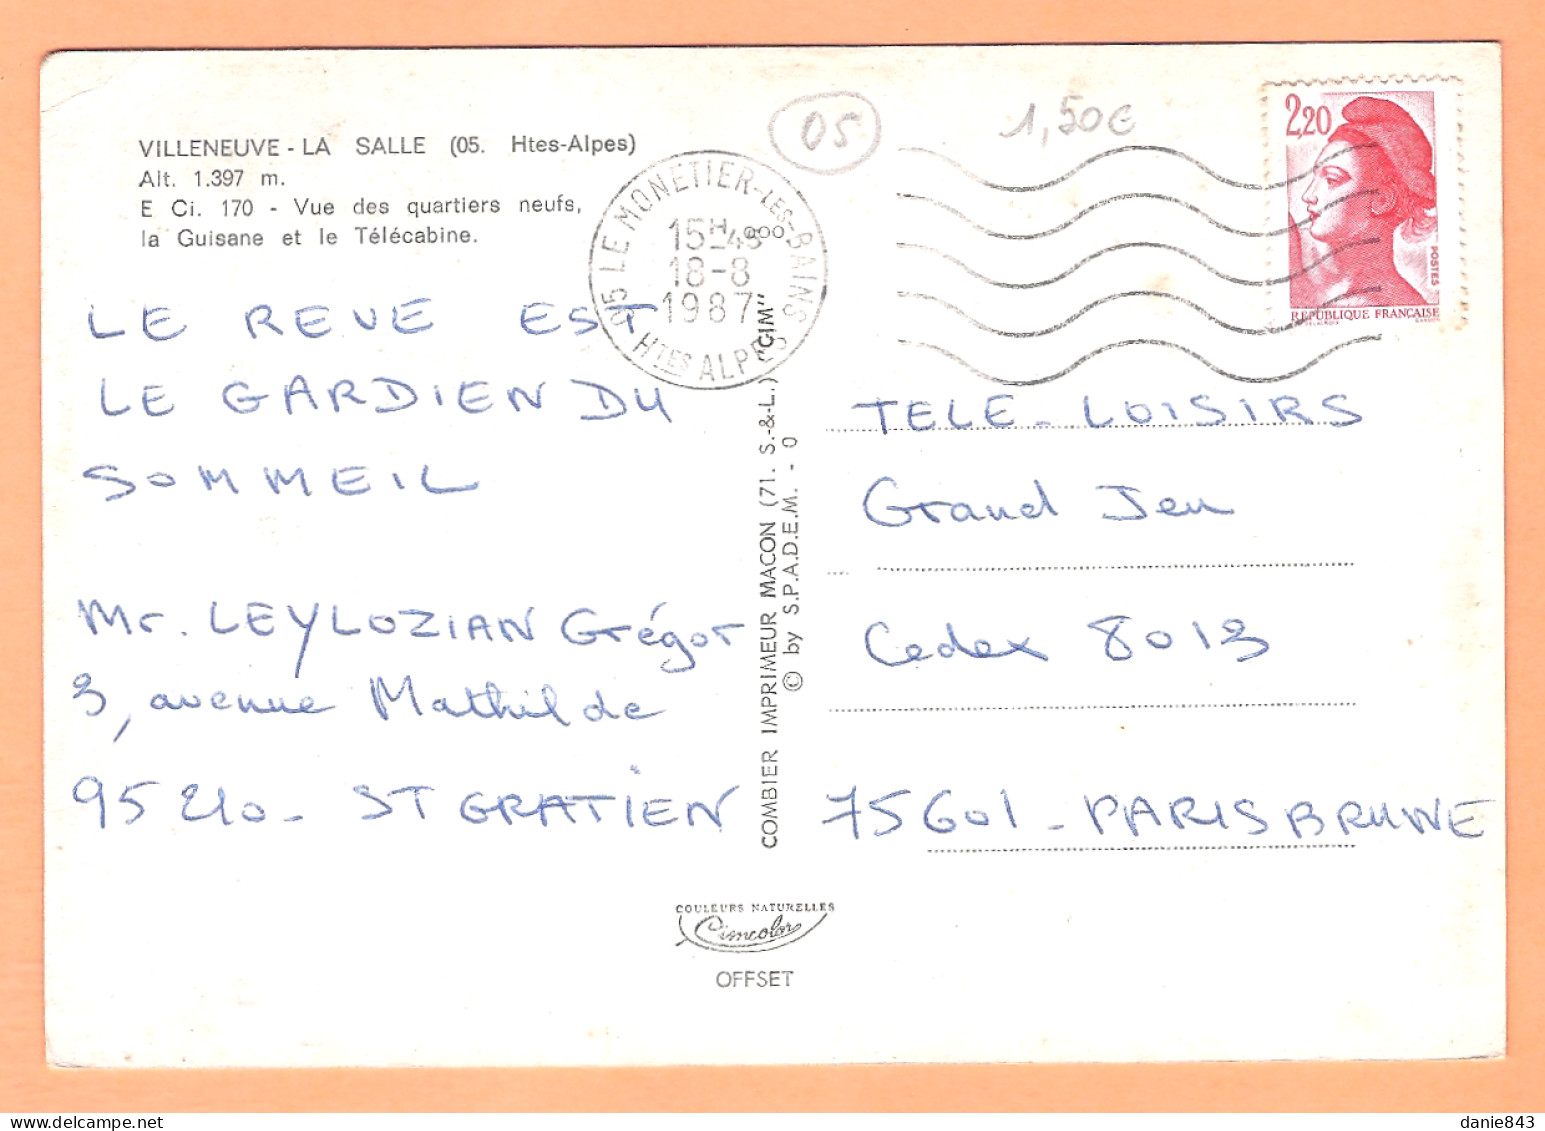 VILLENEUVE - LA SALLE (05. Htes-Alpes)
Alt. 1.397 m.
E Ci. 170 - Vue des quartiers neufs,
la Guisane et le Télécabine.
05
1,50€
05 LE MONETIER-LES-BAINS
15H45
18-8
1987
HTES ALPES
2,20
POSTES
REPUBLIQUE FRANÇAISE
LE REVE EST
LE GARDIEN DU
SOMMEIL
Mr. LEYLOZIAN Grégor
3, avenue Mathilde
95210 - ST GRATIEN
COMBIER IMPRIMEUR MACON (71. S.-&-L.) "CIM"
© by S.P.A.D.E.M. - 0
TELE-LOISIRS
Grand Jeu
Cedex 8013
75601 - PARIS BRUNE
COULEURS NATURELLES
Cimcolor
OFFSET
danie843